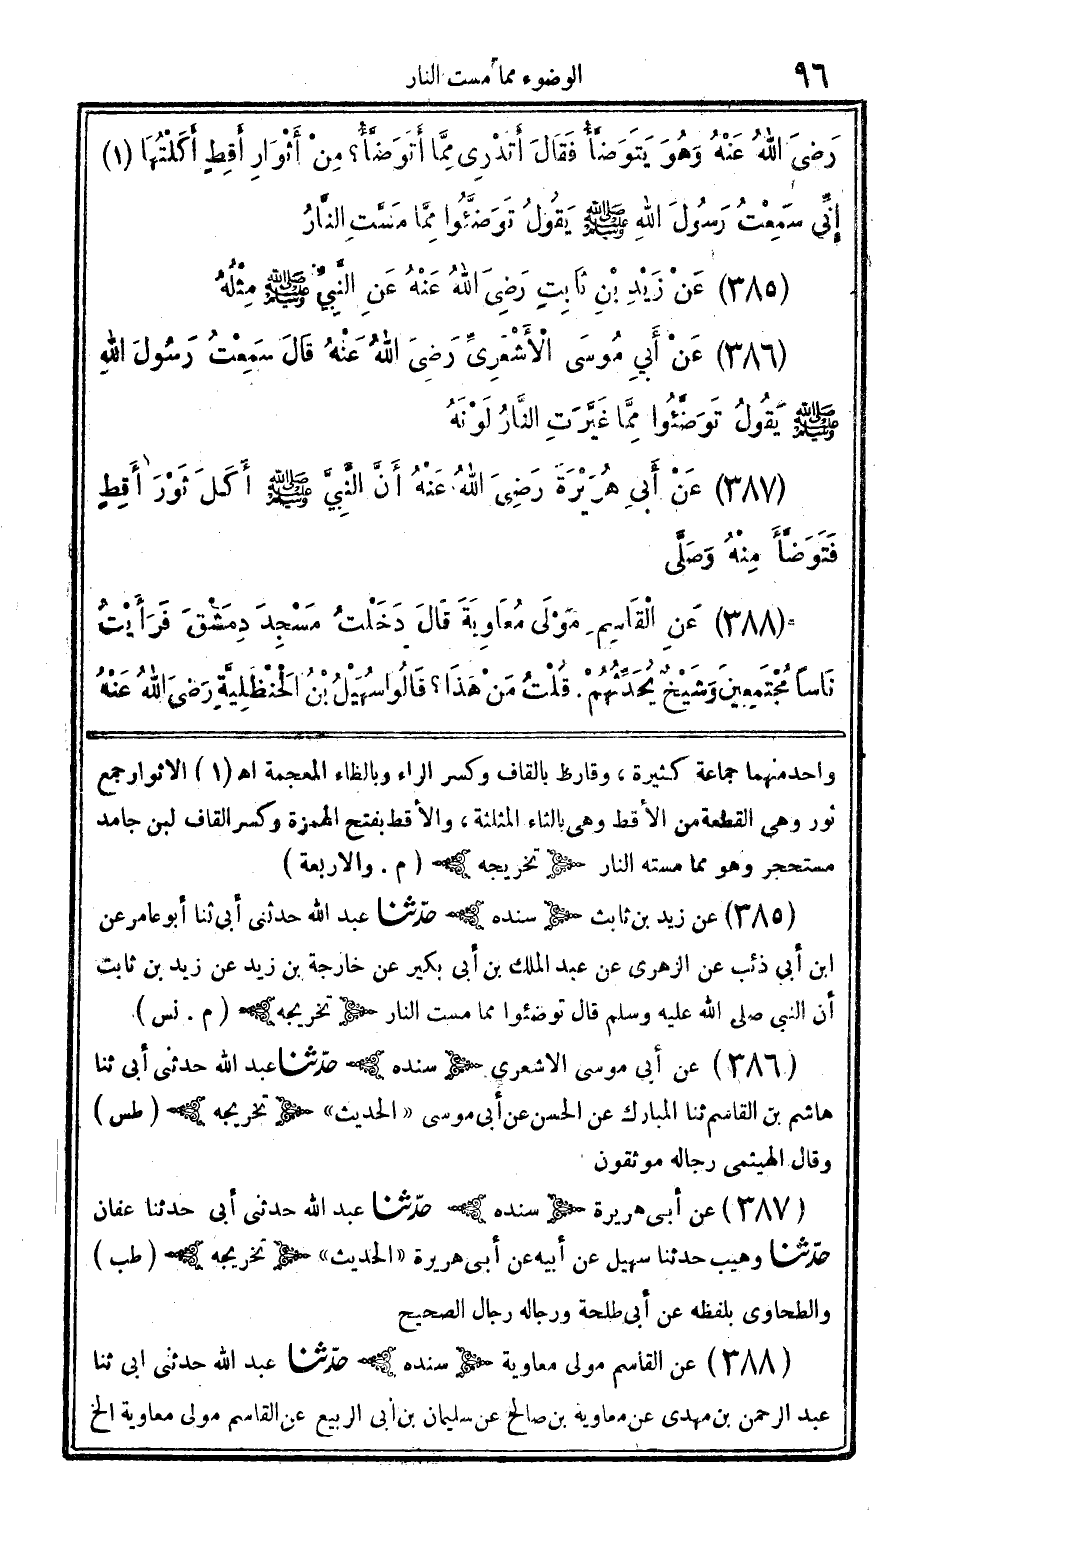 ٩٦ الوضوء مما مست النار
رَضِىَ اللهُ عَنْهُ وَهُوَ يَتَوَضَّأُ فَقَالَ أَتَدْرِى مِمَّا أَتَوَضَّأُ؟ مِنْ أَثْوَارِ أَقِطٍ أَكَلْتُهَا (١)
إِنِّي سَمِعْتُ رَسُولَ اللهِ ﷺ يَقُولُ تَوَضَّئُوا مِمَّا مَسَّتِ النَّارُ
(٣٨٥) عَنْ زَيْدِ بْنِ ثَابِتٍ رَضِىَ اللهُ عَنْهُ عَنِ النَّبِيِّ ﷺ مِثْلُهُ
(٣٨٦) عَنْ أَبِي مُوسَى الْأَشْعَرِىِّ رَضِىَ اللهُ عَنْهُ قَالَ سَمِعْتُ رَسُولَ اللهِ
ﷺ يَقُولُ تَوَضَّئُوا مِمَّا غَيَّرَتِ النَّارُ لَوْنَهُ
(٣٨٧) عَنْ أَبِي هُرَيْرَةَ رَضِىَ اللهُ عَنْهُ أَنَّ النَّبِيَّ ﷺ أَكَلَ ثَوْرَ أَقِطٍ
فَتَوَضَّأَ مِنْهُ وَصَلَّى
(٣٨٨) عَنِ الْقَاسِمِ مَوْلَى مُعَاوِيَةَ قَالَ دَخَلْتُ مَسْجِدَ دِمَشْقَ فَرَأَيْتُ
نَاسًا مُجْتَمِعِينَ وَشَيْخٌ يُحَدِّثُهُمْ. قُلْتُ مَنْ هَذَا؟ قَالُوا سُهَيْلُ بْنُ الْحَنْظَلِيَّةِ رَضِىَ اللهُ عَنْهُ
واحد منهما جماعة كثيرة ، وقارظ بالقاف وكسر الراء وبالظاء المعجمة اه (١) الاثوار جمع
ثور وهي القطعة من الأقط وهي بالثاء المثلثة ، والأقط بفتح الهمزة وكسر القاف لبن جامد
مستحجر وهو مما مسته النار ﴿ تخريجه ﴾ ( م . والاربعة )
(٣٨٥) عن زيد بن ثابت ﴿ سنده ﴾ حدّثنا عبد الله حدثنى أبى ثنا أبو عامر عن
ابن أبي ذئب عن الزهرى عن عبد الملك بن أبي بكير عن خارجة بن زيد عن زيد بن ثابت
أن النبي صلى الله عليه وسلم قال توضئوا مما مست النار ﴿ تخريجه ﴾ ( م . نس ).
(٣٨٦) عن أبي موسى الاشعري ﴿ سنده ﴾ حدّثنا عبد الله حدثنى أبى ثنا
هاشم بن القاسم ثنا المبارك عن الحسن عن أبي موسى «الحديث» ﴿ تخريجه ﴾ ( طس )
وقال الهيثمى رجاله موثقون
(٣٨٧) عن أبى هريرة ﴿ سنده ﴾ حدّثنا عبد الله حدثنى أبى حدثنا عفان
حدّثنا وهيب حدثنا سهيل عن أبيه عن أبى هريرة «الحديث» ﴿ تخريجه ﴾ ( طب )
والطحاوى بلفظه عن أبى طلحة ورجاله رجال الصحيح
(٣٨٨) عن القاسم مولى معاوية ﴿ سنده ﴾ حدّثنا عبد الله حدثنى ابى ثنا
عبد الرحمن بن مهدى عن معاوية بن صالح عن سليمان بن أبى الربيع عن القاسم مولى معاوية الخ